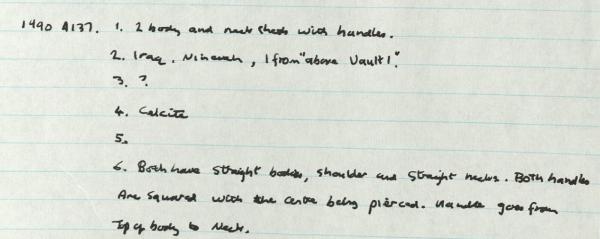 1490 A137. 1. 2 body and neck sherds with handles.
2. Iraq. Nineveh, 1 from "above Vault 1".
3. ?
4. Calcite
5.
6. Both have straight bodies, shoulder and straight necks. Both handles
Are squared with the centre being pierced. Handle goes from
Top of body to Neck.